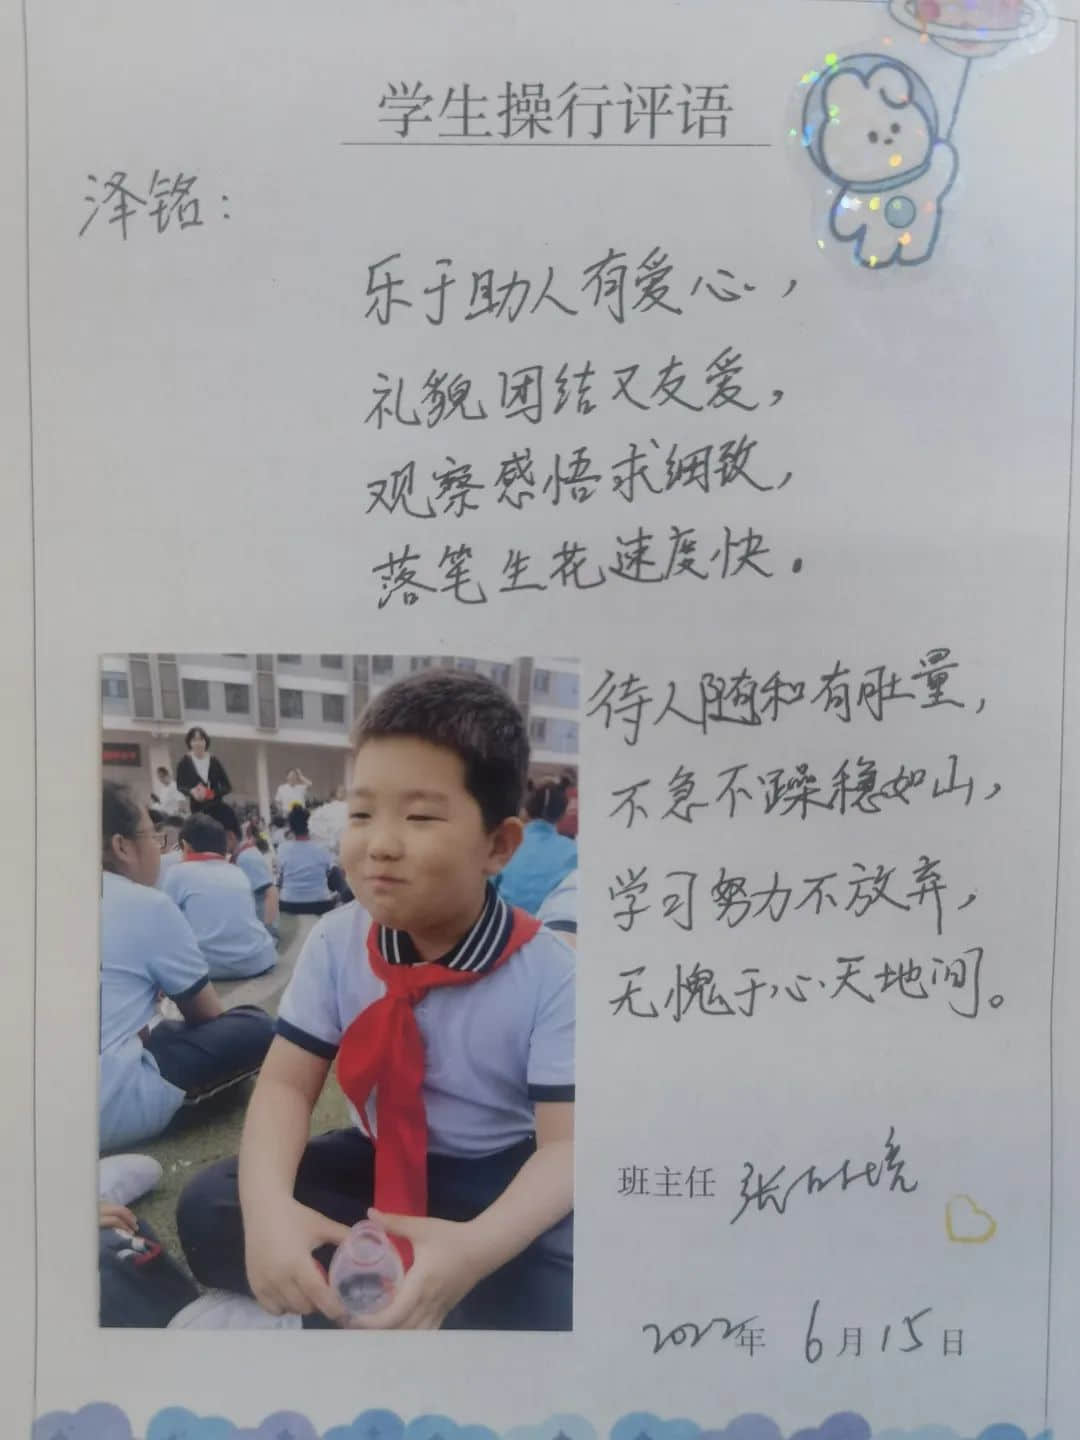 学生操行评语
泽铭：
乐于助人有爱心，
礼貌团结又友爱，
观察感悟求细致，
落笔生花速度快。
待人随和有肚量，
不急不躁稳如山，
学习努力不放弃，
无愧于心天地间。
班主任 张
2022年 6月15日